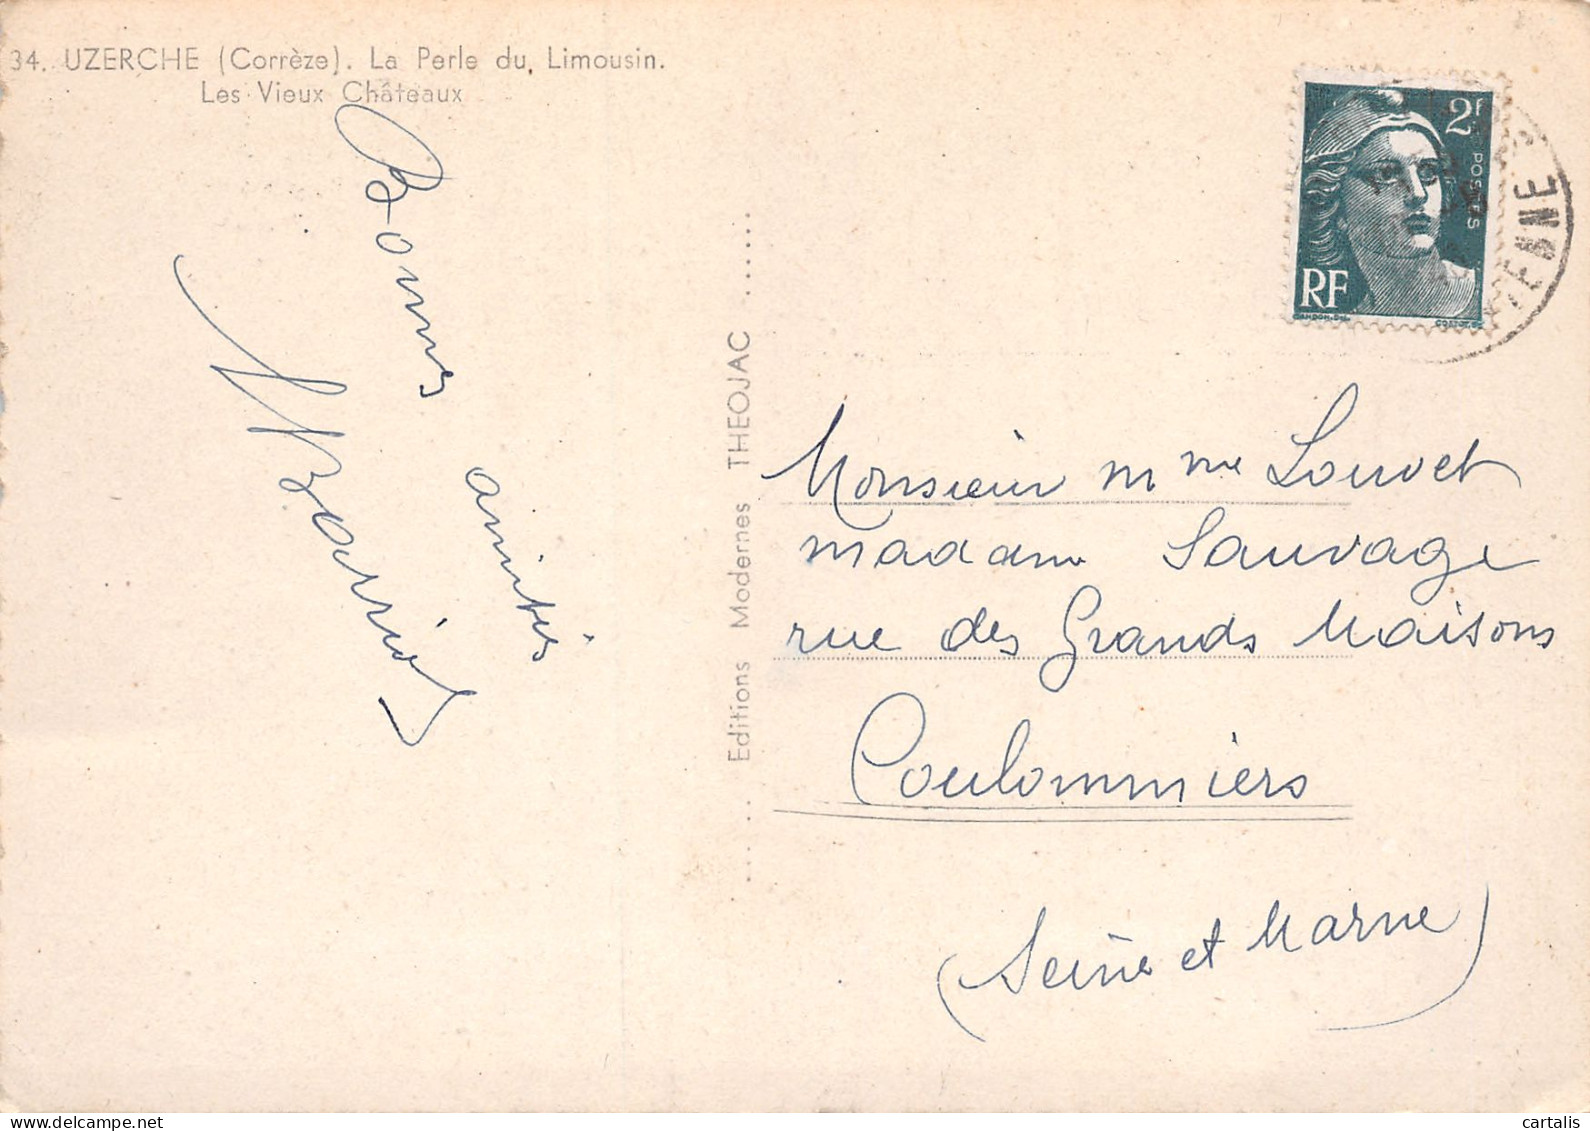 34. UZERCHE (Corrèze). La Perle du Limousin.
Les Vieux Châteaux
Bonnes
amitiés
Editions Modernes THEOJAC
2F
POSTES
RF
GANDON.DEL.
IENNE
Monsieur M me Louvet
madame Sauvage
rue des Grands Maisons
Coulommiers
(Seine et Marne)
cartalis